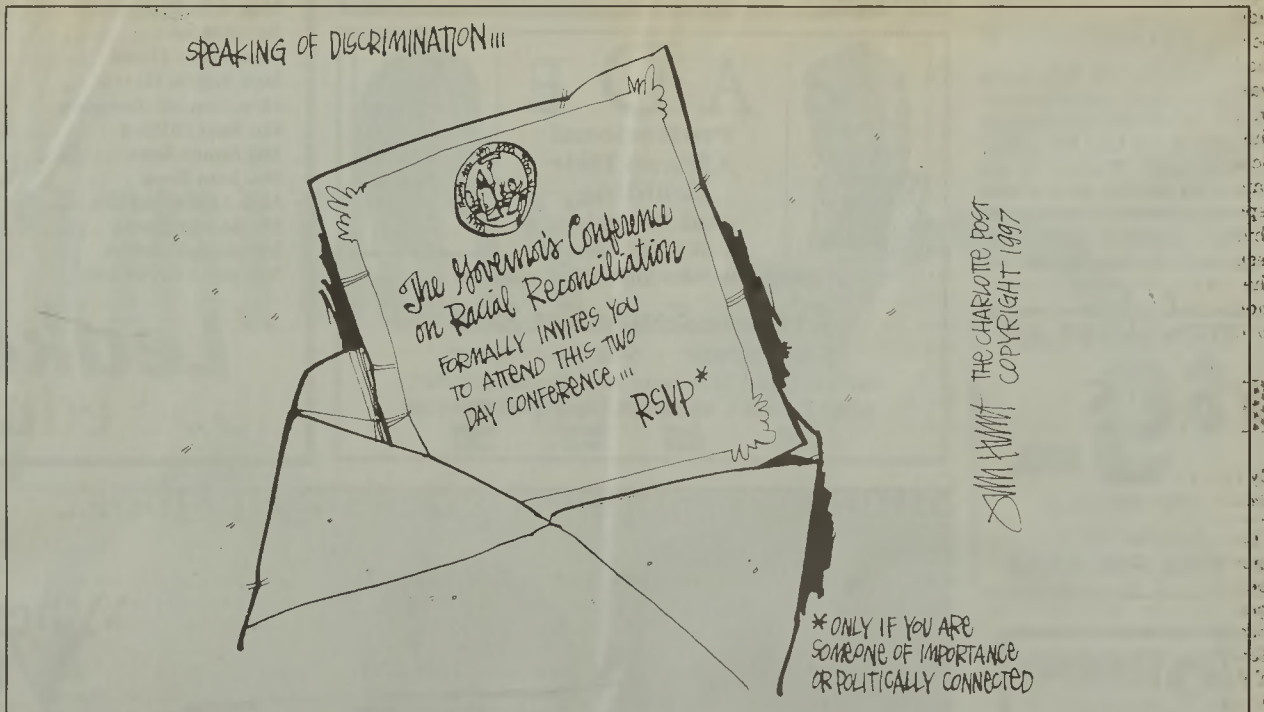 SPEAKING OF DISCRIMINATION...
The Governor's Conference
on Racial Reconciliation
FORMALLY INVITES YOU
TO ATTEND THIS TWO
DAY CONFERENCE...
RSVP*
*ONLY IF YOU ARE
SOMEONE OF IMPORTANCE
OR POLITICALLY CONNECTED
THE CHARLOTTE POST
COPYRIGHT 1997